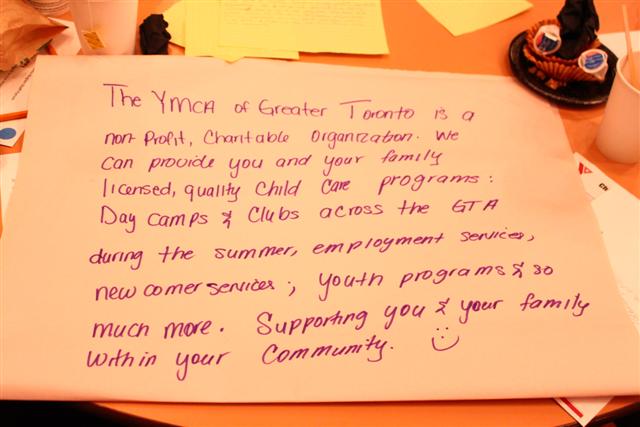 The YMCA of Greater Toronto is a
non-Profit, Charitable Organization. We
can provide you and your family
licensed, quality Child Care programs:
Day camps & Clubs across the GTA
during the summer, employment services,
newcomer services; youth programs & so
much more. Supporting you & your family
within your Community. :)